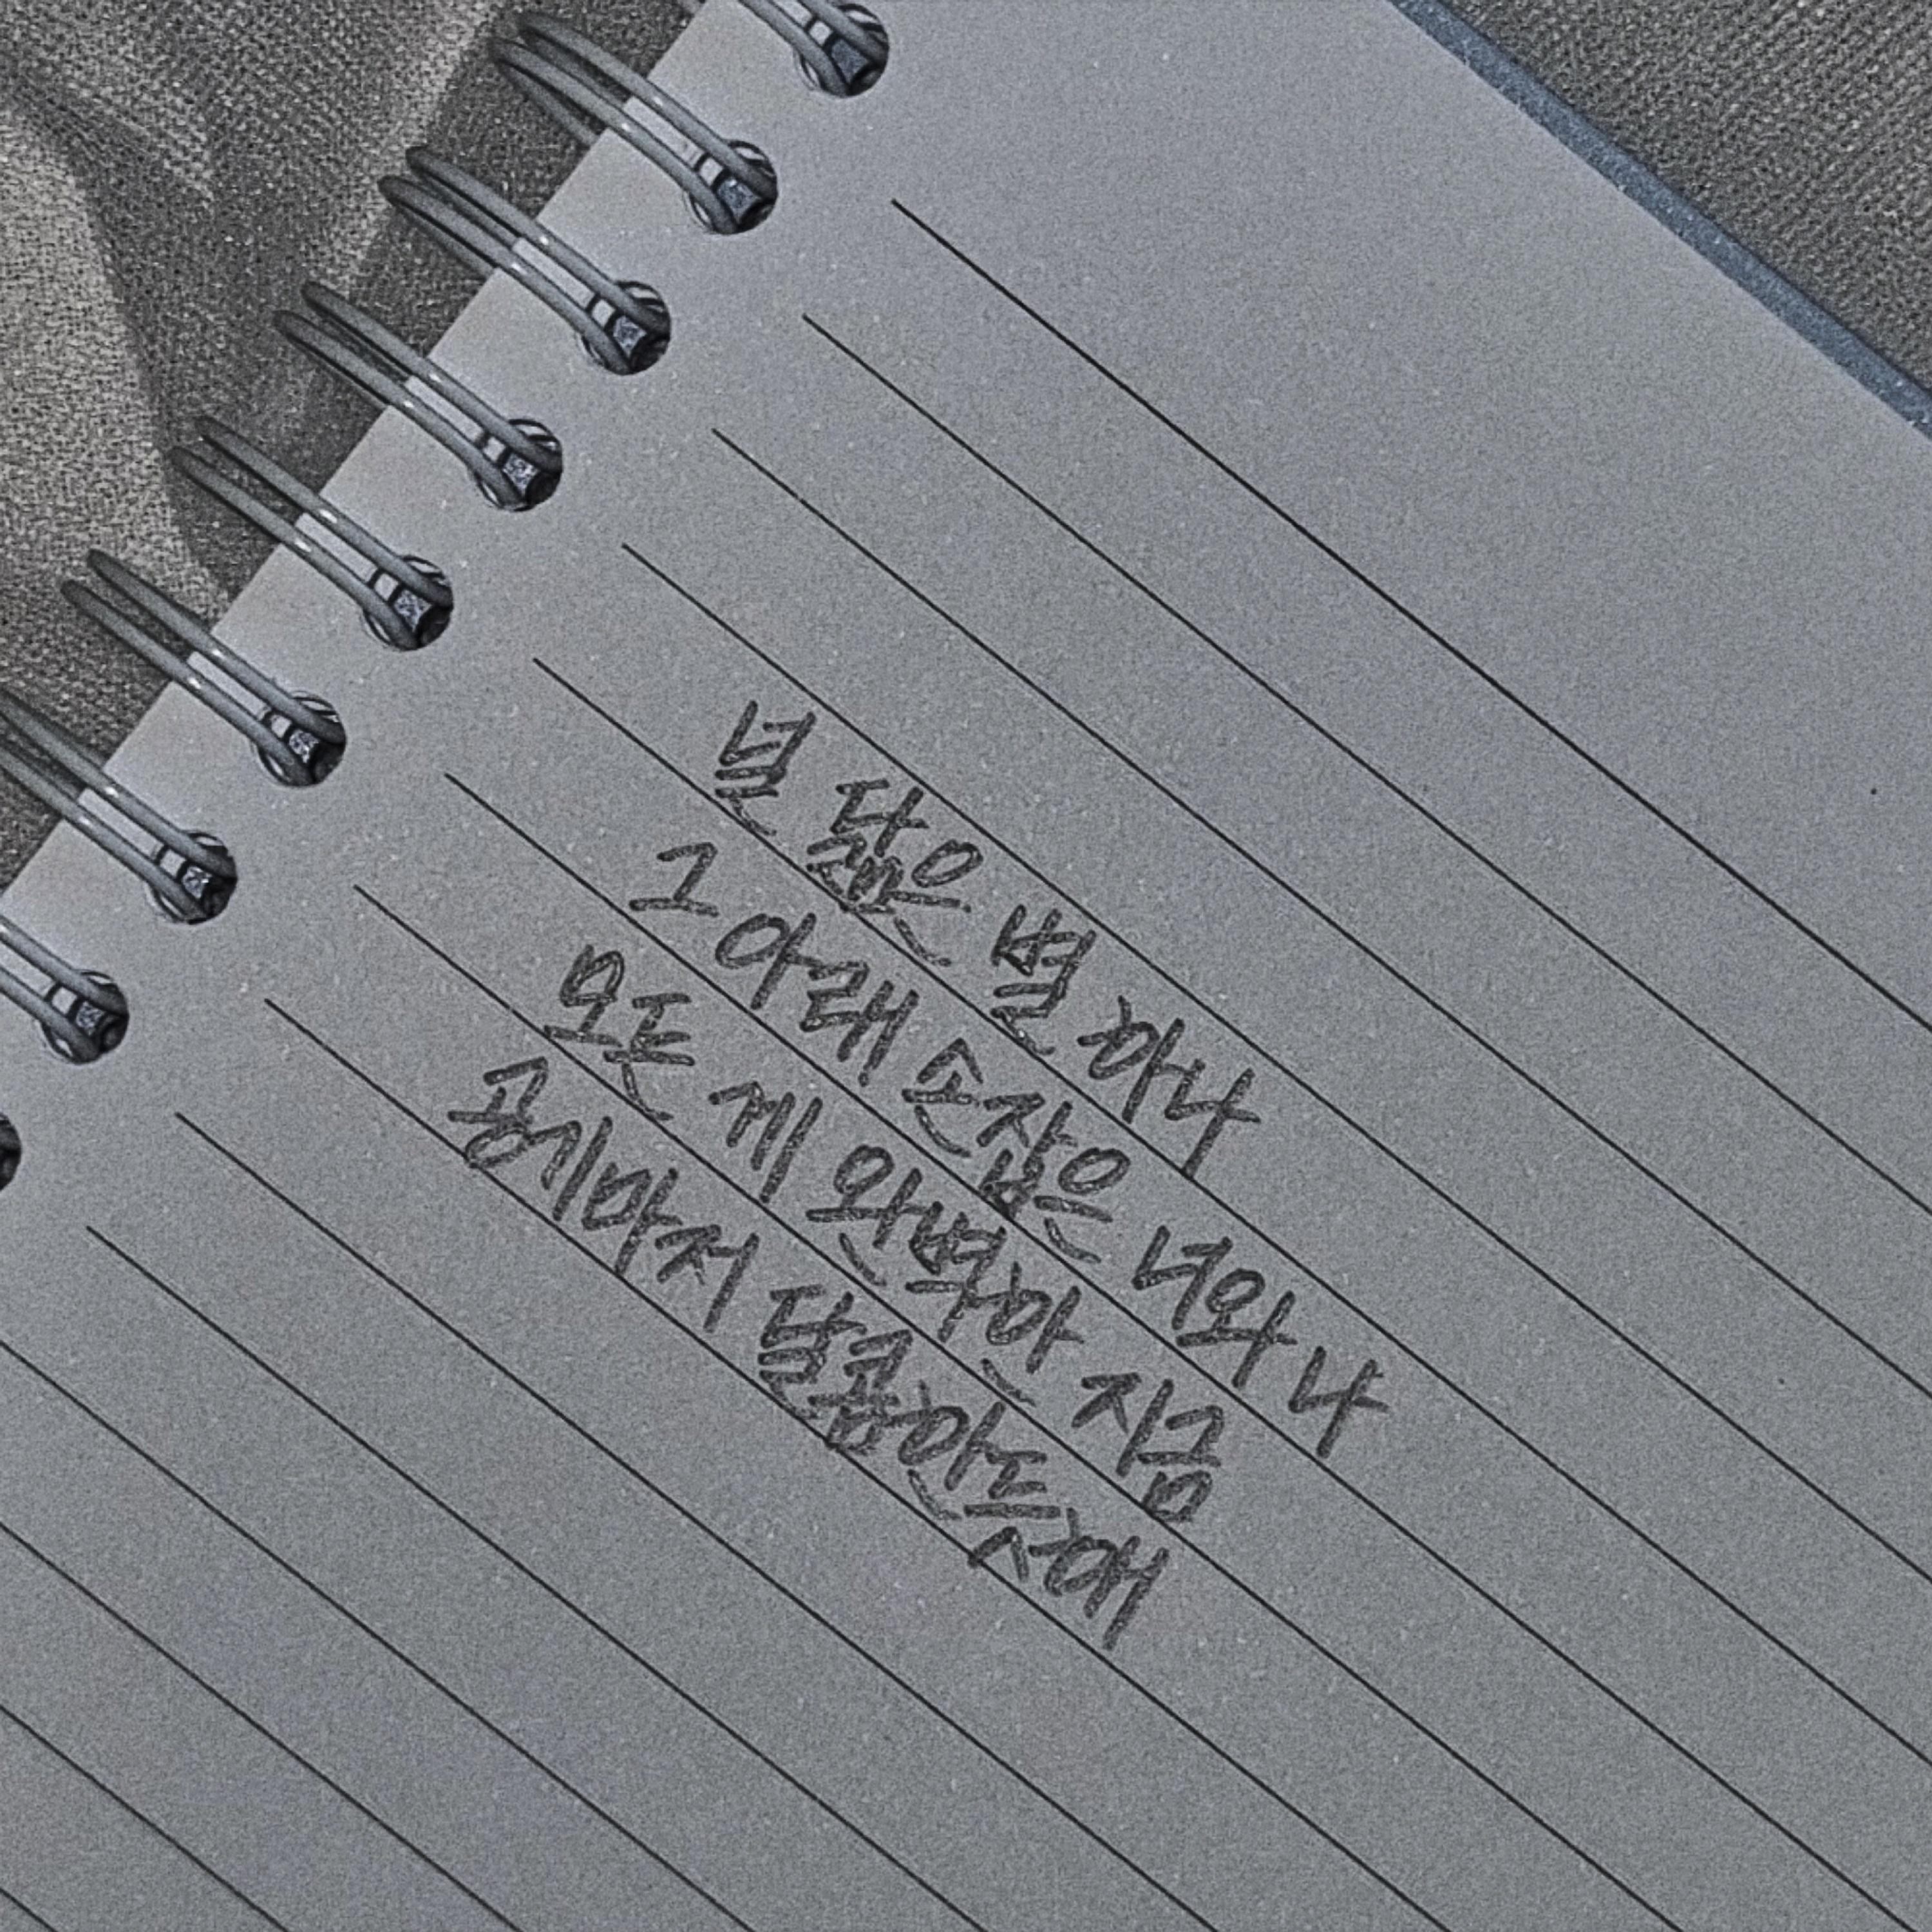 널 닮은 별 하나
그 아래 손잡은 너와 나
모든 게 완벽한 지금
공기마저 달콤한듯해